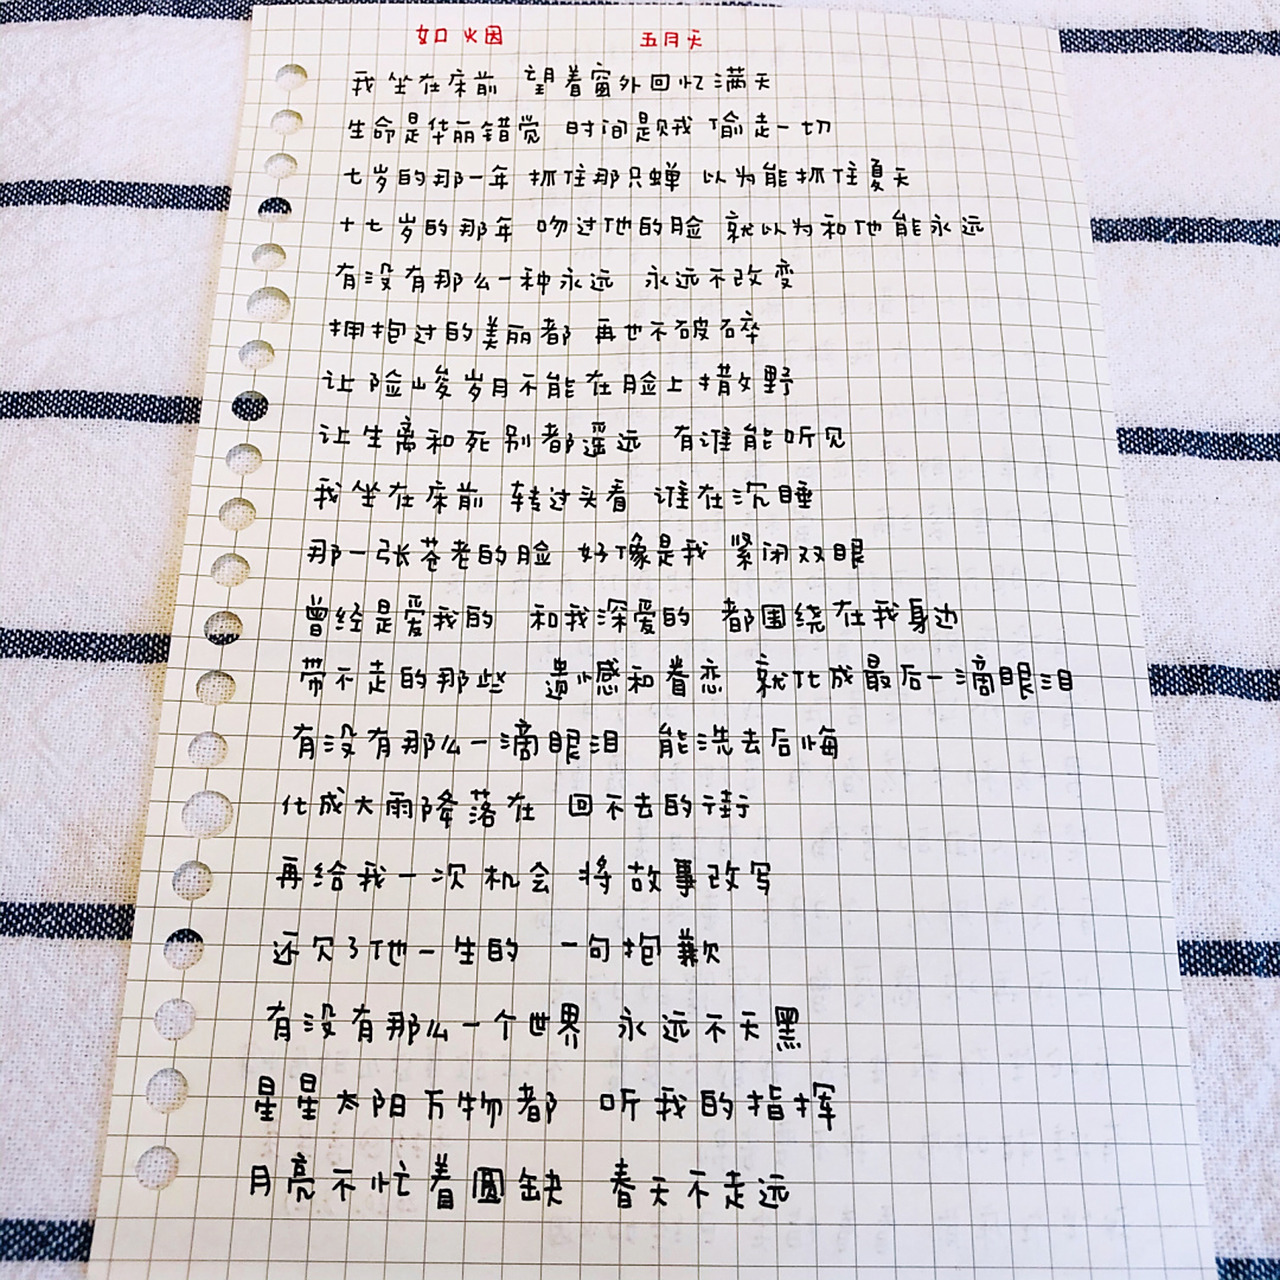 如烟 五月天
我坐在床前 望着窗外回忆满天
生命是华丽错觉 时间是贼偷走一切
七岁的那一年 抓住那只蝉 以为能抓住夏天
十七岁的那年 吻过他的脸 就以为和他能永远
有没有那么一种永远 永远不改变
拥抱过的美丽都 再也不破碎
让险峻岁月不能在脸上撒野
让生离和死别都遥远 有谁能听见
我坐在床前 转过头看 谁在沉睡
那一张苍老的脸 好像是我 紧闭双眼
曾经是爱我的 和我深爱的 都围绕在我身边
带不走的那些 遗憾和眷恋 就化成最后一滴眼泪
有没有那么一滴眼泪 能洗去后悔
化成大雨降落在 回不去的街
再给我一次机会 将故事改写
还欠了他一生的 一句抱歉
有没有那么一个世界 永远不天黑
星星太阳万物都 听我的指挥
月亮不忙着圆缺 春天不走远